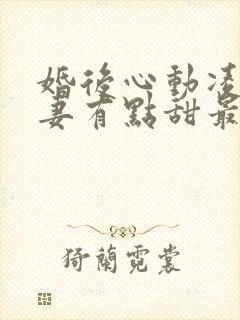 婚後心動凌
妻有點甜最
猗蘭霓裳